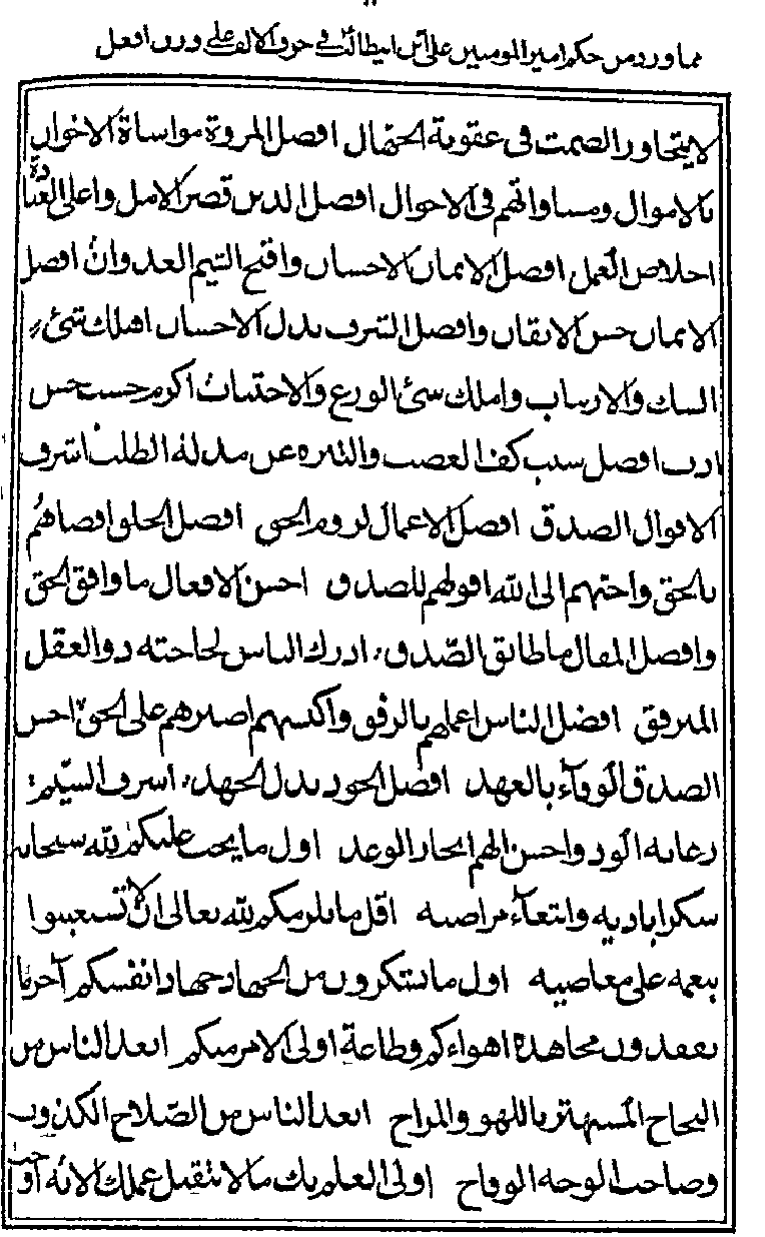 مما ورد من حكم امير المومنين على ابن ابيطالب في حرف الالف على وزن افعل
لا يتجاوز الصمت فى عقوبة الجهال افضل المروة مواساة الاخوان
بالاموال ومساواتهم فى الاحوال افضل الدين قصر الامل واعلى العبادة
اخلاص العمل افضل الايمان الاحسان واقبح الشيم العدوان افضل
الايمان حسن الايقان وافضل الشرف بذل الاحسان اهلك شئ
الشك والارتياب واملك شئ الورع والاجتناب اكرم حسب حسن
ادب افضل سبب كف الغضب والتنزه عن مذلة الطلب اشرف
الاقوال الصدق افضل الاعمال لزوم الحق افضل الخلق اقضاهم
بالحق واحبهم الى الله اقولهم للصدق احسن الافعال ما وافق الحق
وافضل المقال ما طابق الصّدق ادرك الناس لحاجته ذو العقل
المترفق افضل الناس اعملهم بالرفق واكيسهم اصبرهم على الحق احسن
الصدق الوفآء بالعهد افضل الجود بذل الجهد اشرف الشيم
رعاية الود واحسن الهمم انجاز الوعد اول ما يجب عليكم لله سبحانه
شكر اياديه وابتغآء مراضيه اقل ما يلزمكم لله تعالى ان لا تستعينوا
بنعمه على معاصيه اول ما تنكرون من الجهاد جهاد انفسكم آخر ما
تفقدون مجاهدة اهواءكم وطاعة اولى الامر منكم ابعد الناس من
النجاح المستهتر باللهو والمزاح ابعد الناس من الصّلاح الكذوب
وصاحب الوجه الوقاح اولى العلم بك ما لا يتقبل عملك الا به اوجب